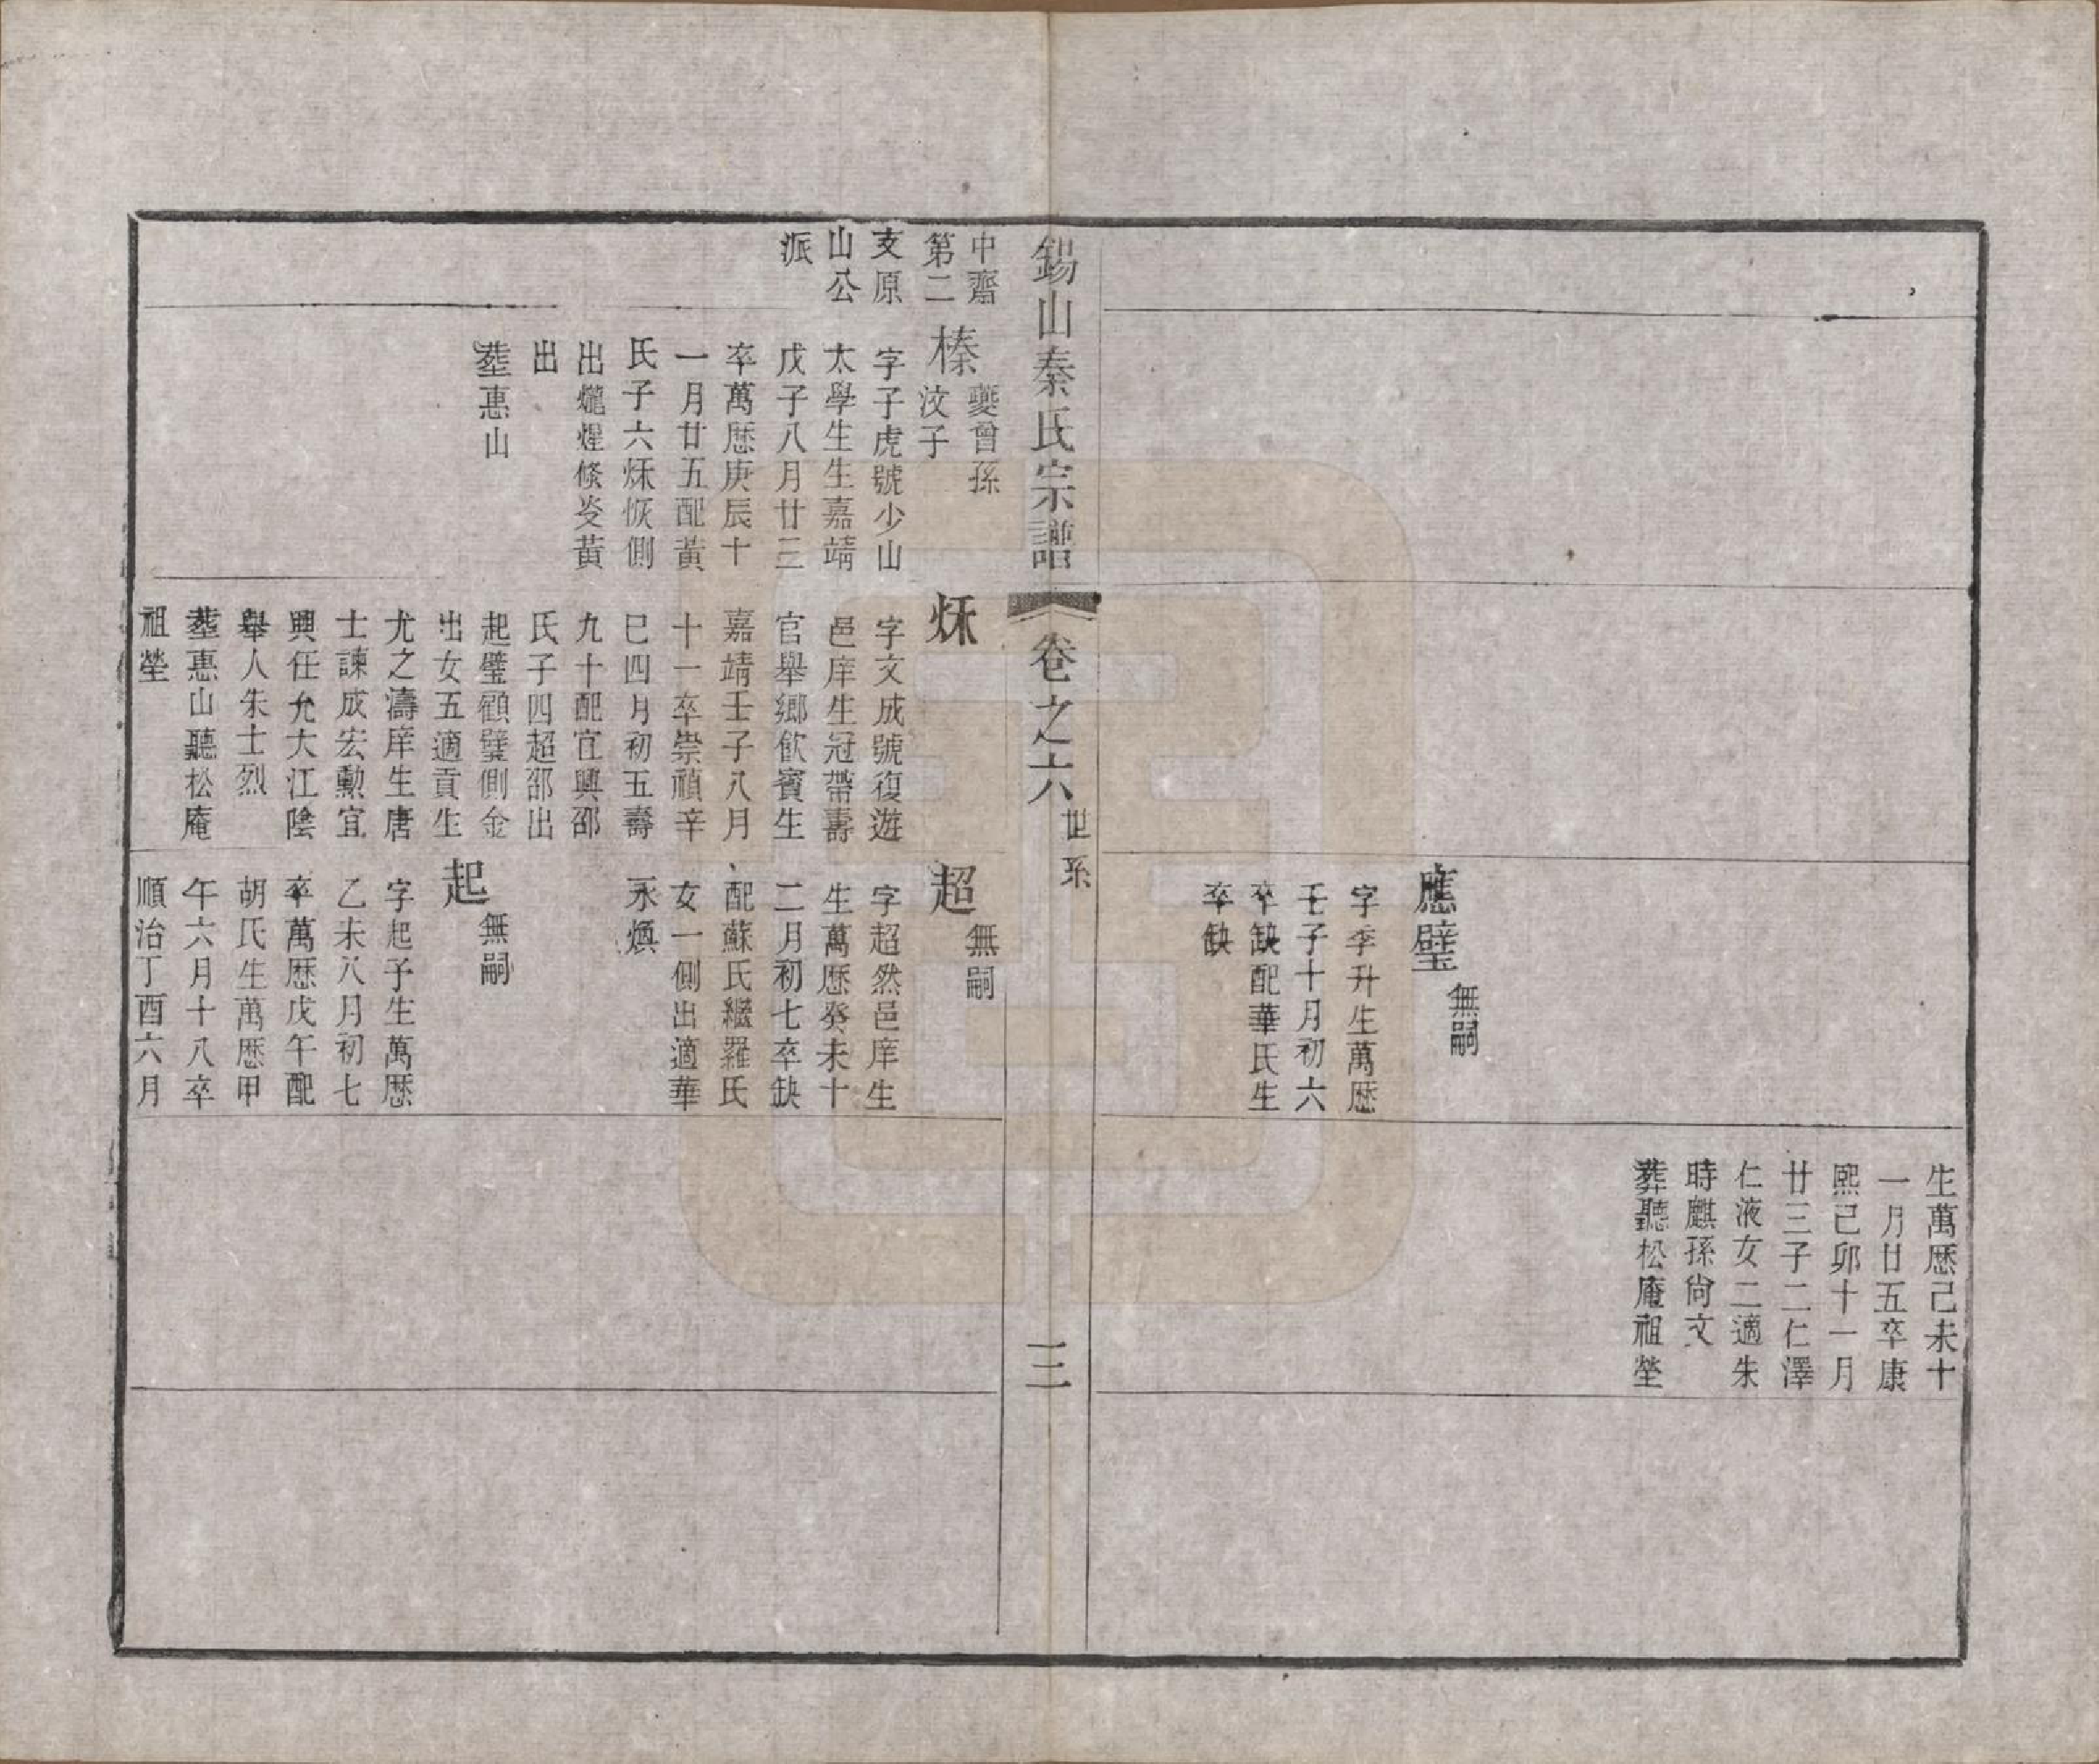 生萬厯己未十
一月廿五卒康
熙己卯十一月
廿三子二仁澤
仁液女二適朱
時麒孫尙文
葬聽松庵祖塋
應璧
無嗣
字季升生萬厯
壬子十月初六
卒缺配華氏生
卒缺
錫山秦氏宗譜
卷之六
世系
三
中齋
第二
支原
山公
派
榛
夔曾孫
汶子
字子虎號少山
太學生生嘉靖
戊子八月廿三
卒萬厯庚辰十
一月廿五配黃
氏子六烌恢側
出爖煋條炗黃
出
葬惠山
烌
字文成號復遊
邑庠生冠帶壽
官舉鄉飲賓生
嘉靖壬子八月
十一卒崇禎辛
巳四月初五壽
九十配宜興邵
氏子四超邵出
起璧顧璧側金
出女五適貢生
尤之濤庠生唐
士諫成宏勳宜
興任允大江陰
舉人朱士烈
葬惠山聽松庵
祖塋
超
無嗣
字超然邑庠生
生萬厯癸未十
二月初七卒缺
配蘇氏繼羅氏
女一側出適華
永煥
起
無嗣
字起予生萬厯
乙未八月初七
卒萬厯戊午配
胡氏生萬厯甲
午六月十八卒
順治丁酉六月